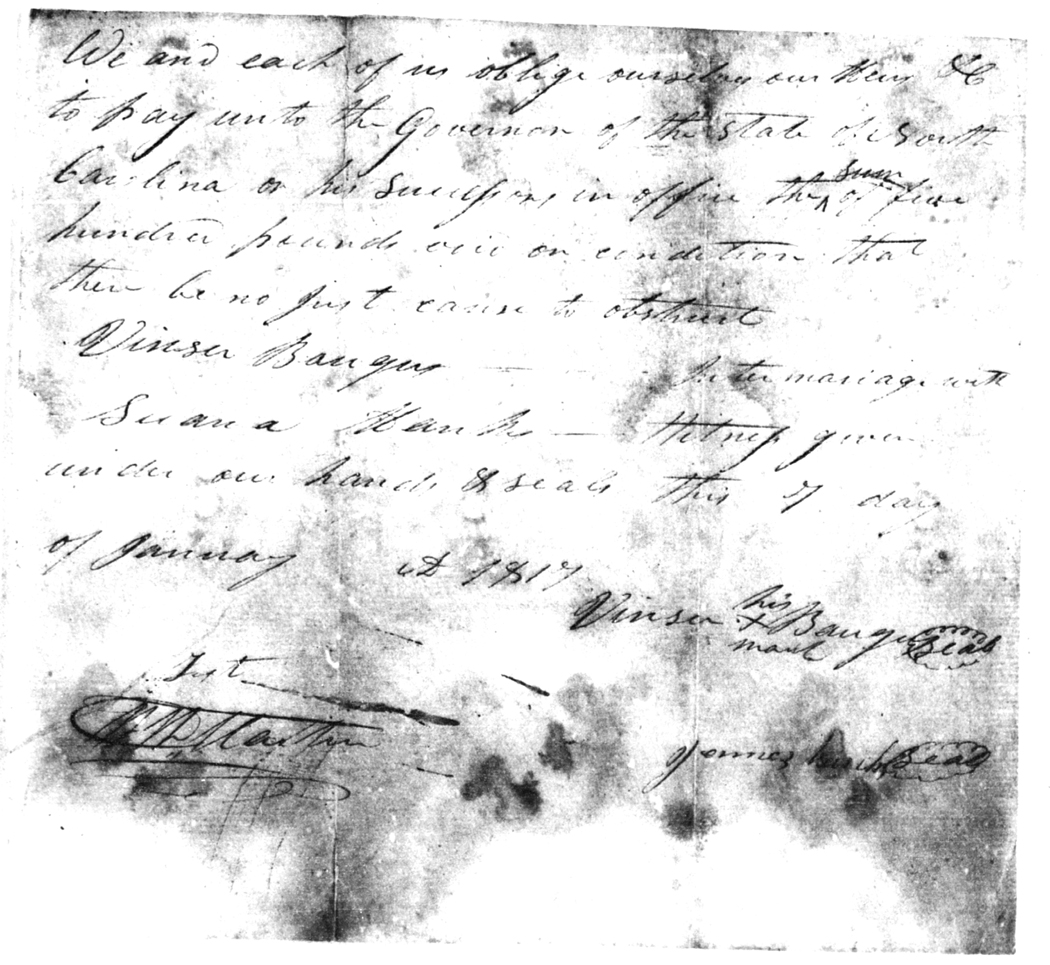 We and each of us oblige ourselves our Heirs &C
to pay unto the Governor of the State of South
Carolina or his Successors in office the sum of five
hundred pounds on condition that
there be no Just cause to obstruct
Vinser Baugus Inter mariage with
Suana Hanks Witness given
under our hands & seals this 7 day
of January AD 1817
Vinser his X mark Baugus Seal
Test
Martin
James Seal